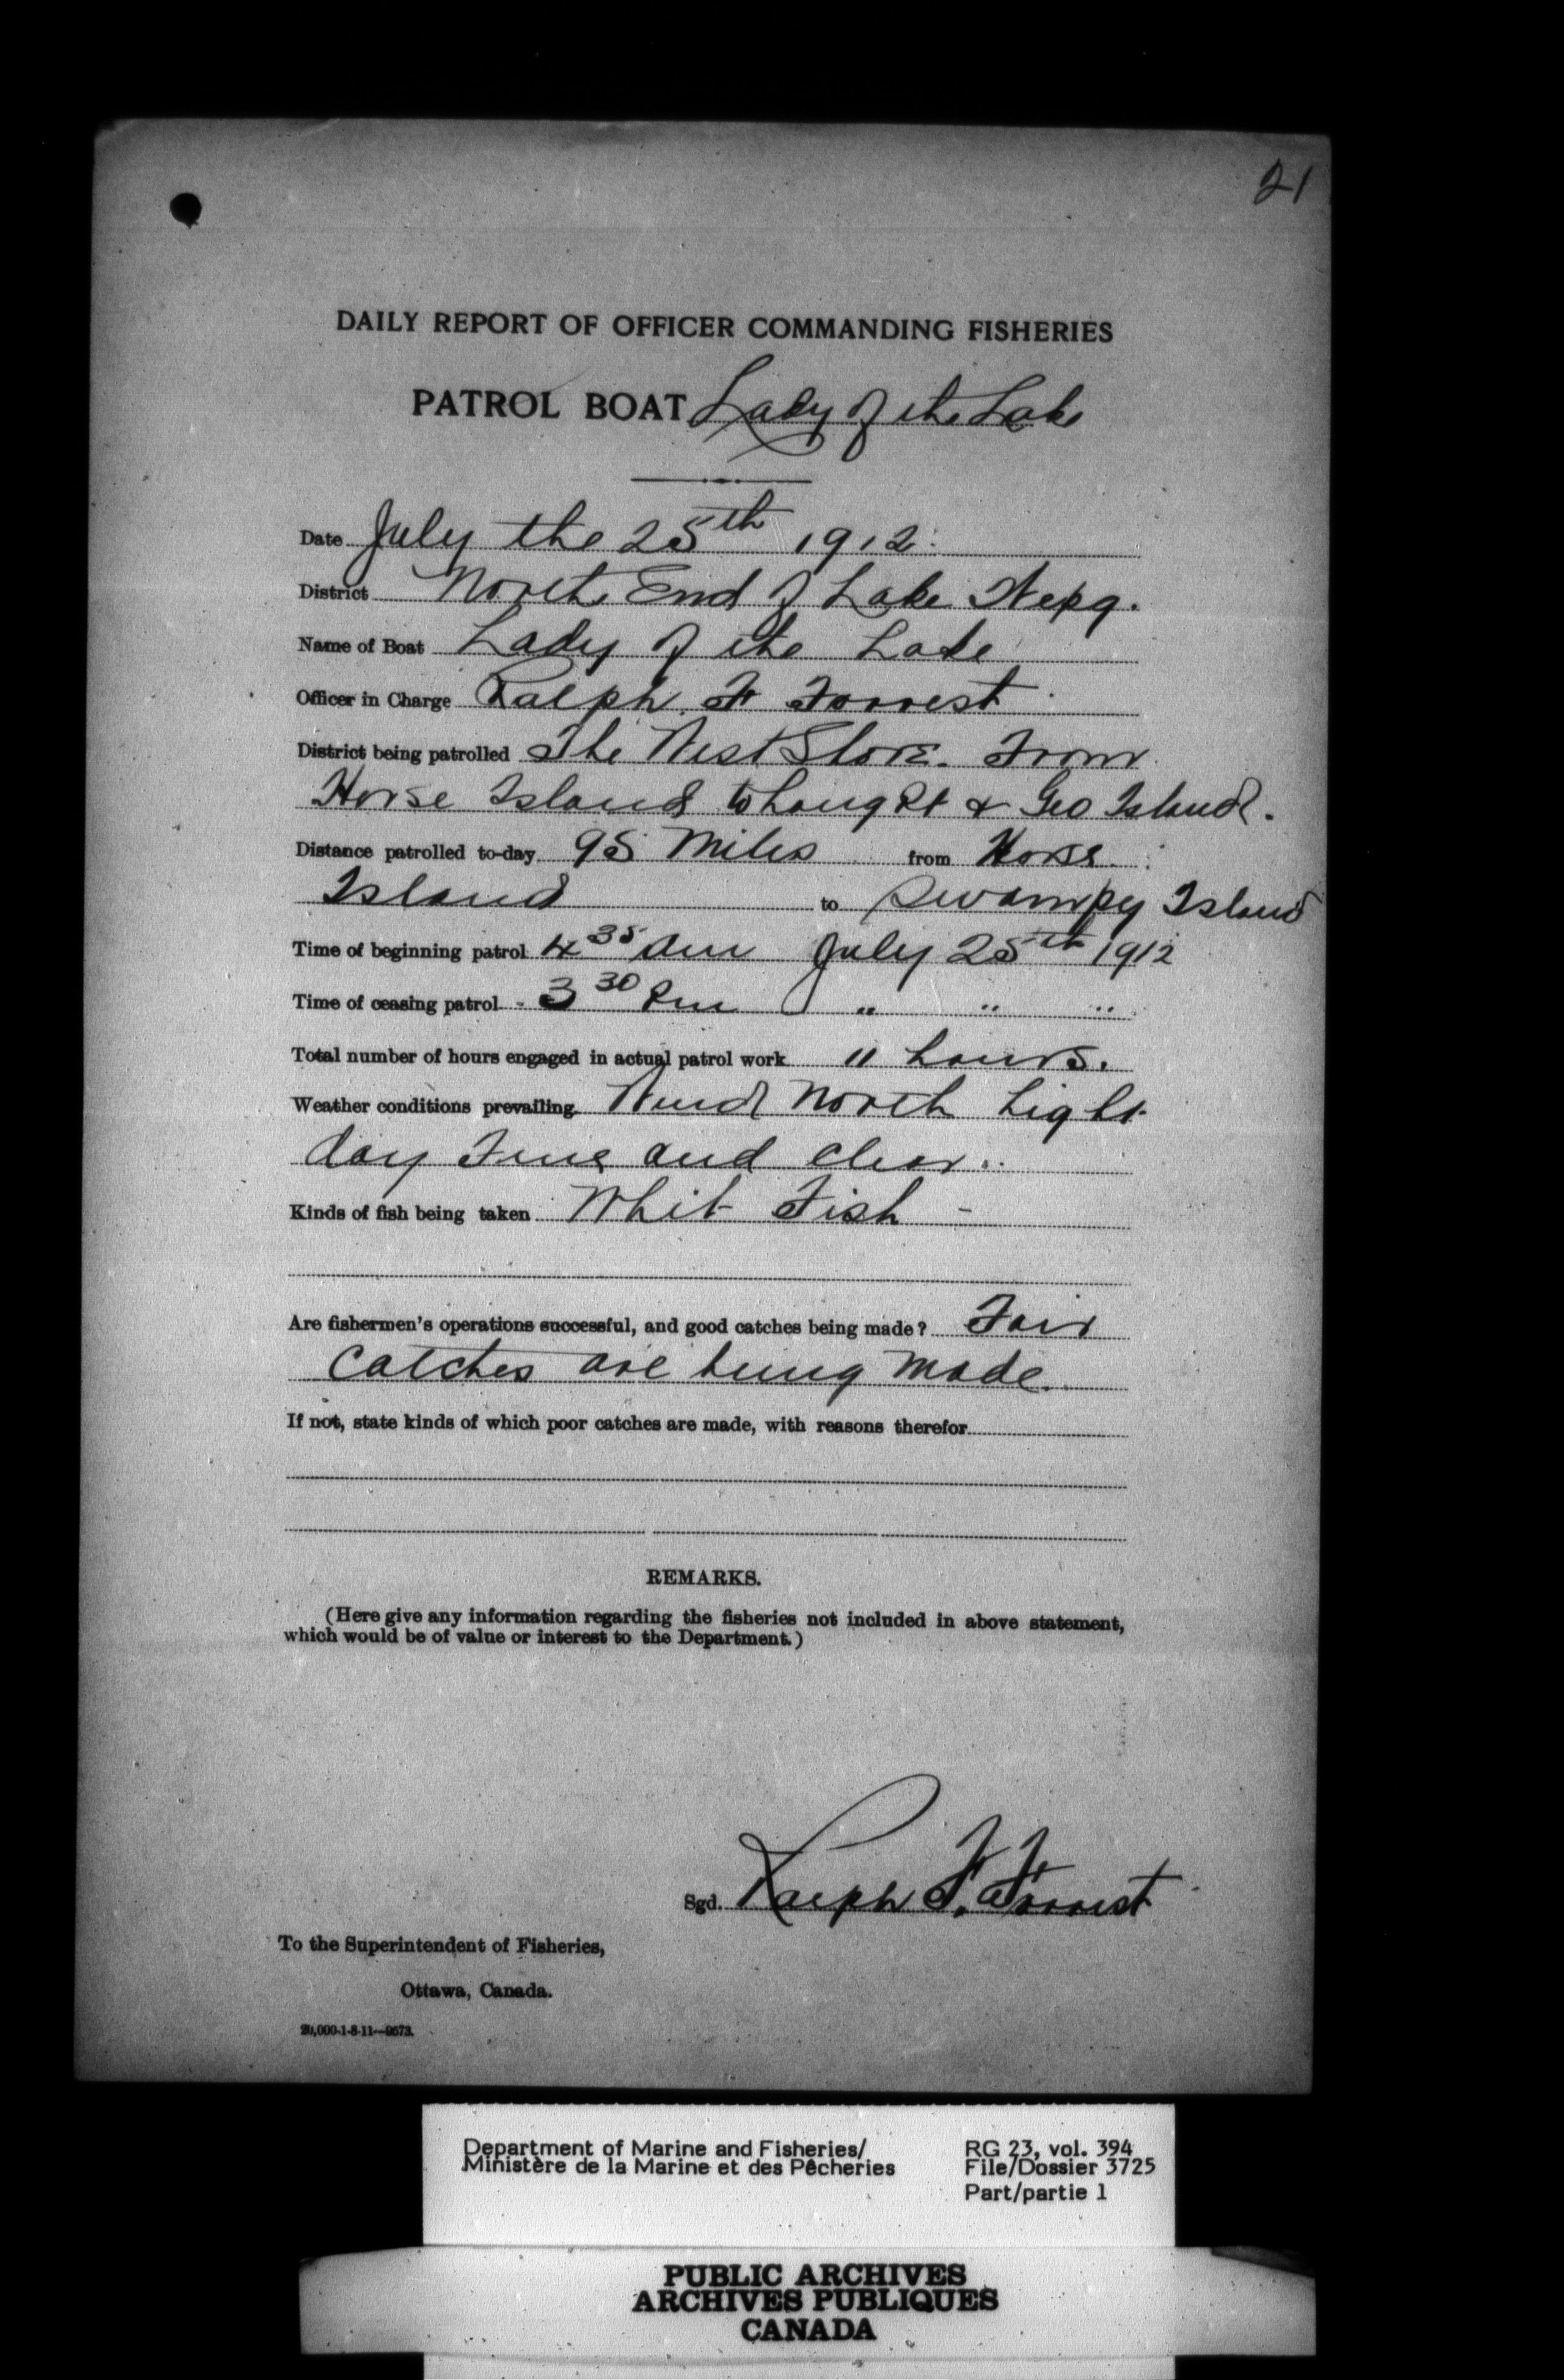 21
DAILY REPORT OF OFFICER COMMANDING FISHERIES
PATROL BOAT Lady of the Lake
Date July the 25th 1912.
District North End of Lake Wepg.
Name of Boat Lady of the Lake
Officer in Charge Ralph F Forrest
District being patrolled The West Shore. From
Horse Island to Long Pt & Geo Island.
Distance patrolled to-day 95 Miles from Horse
Island to Swampy Island
Time of beginning patrol 4 35 Am July 25th 1912
Time of ceasing patrol - 3 30 Pm " " "
Total number of hours engaged in actual patrol work 11 hours.
Weather conditions prevailing Wind North Light
day Fine and clear..
Kinds of fish being taken Whit Fish -
Are fishermen's operations successful, and good catches being made? Fair
Catches are being made.
If not, state kinds of which poor catches are made, with reasons therefor
REMARKS.
(Here give any information regarding the fisheries not included in above statement,
which would be of value or interest to the Department.)
Sgd. Ralph F. Forrest
To the Superintendent of Fisheries,
Ottawa, Canada.
20,000-1-8-11—9573.
Department of Marine and Fisheries/ RG 23, vol. 394
Ministère de la Marine et des Pêcheries File/Dossier 3725
Part/partie 1
PUBLIC ARCHIVES
ARCHIVES PUBLIQUES
CANADA